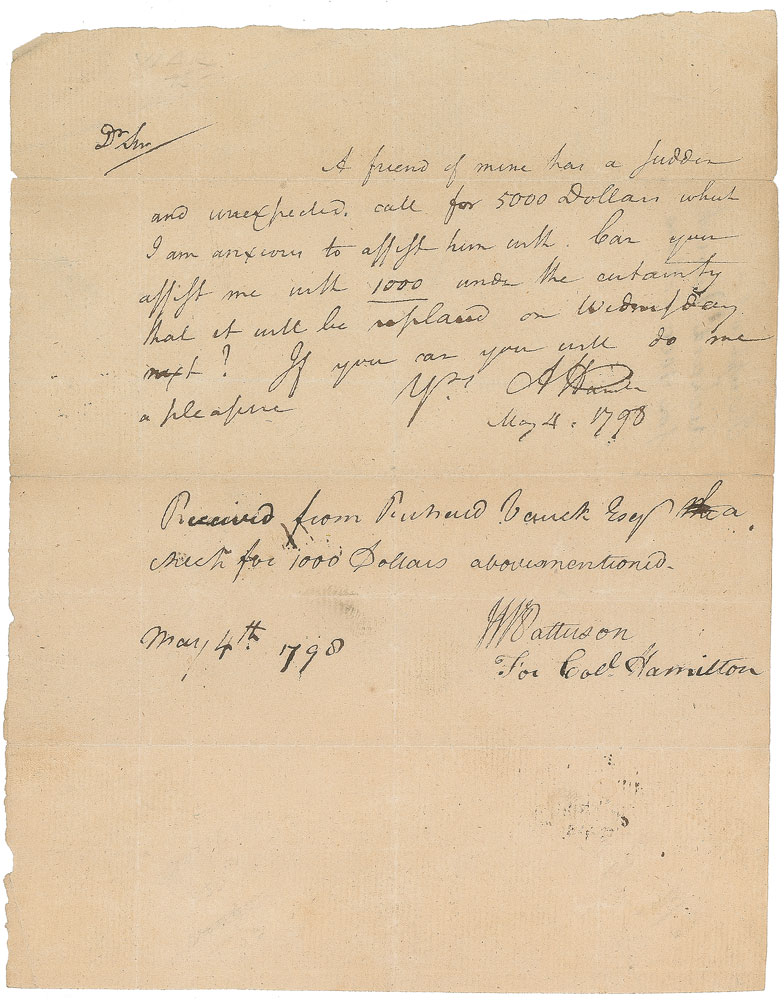 Dr Sir
A friend of mine has a sudden
and unexpected call for 5000 Dollars which
I am anxious to assist him with. Can you
assist me with 1000 under the certainty
that it will be replaced on Wednesday
next? If you can you will do me
a pleasure Yrs A Hamilton
May 4. 1798
Received from Richard Varick Esqr a
check for 1000 Dollars abovementioned.
May 4th 1798
W Patterson
For Col. Hamilton